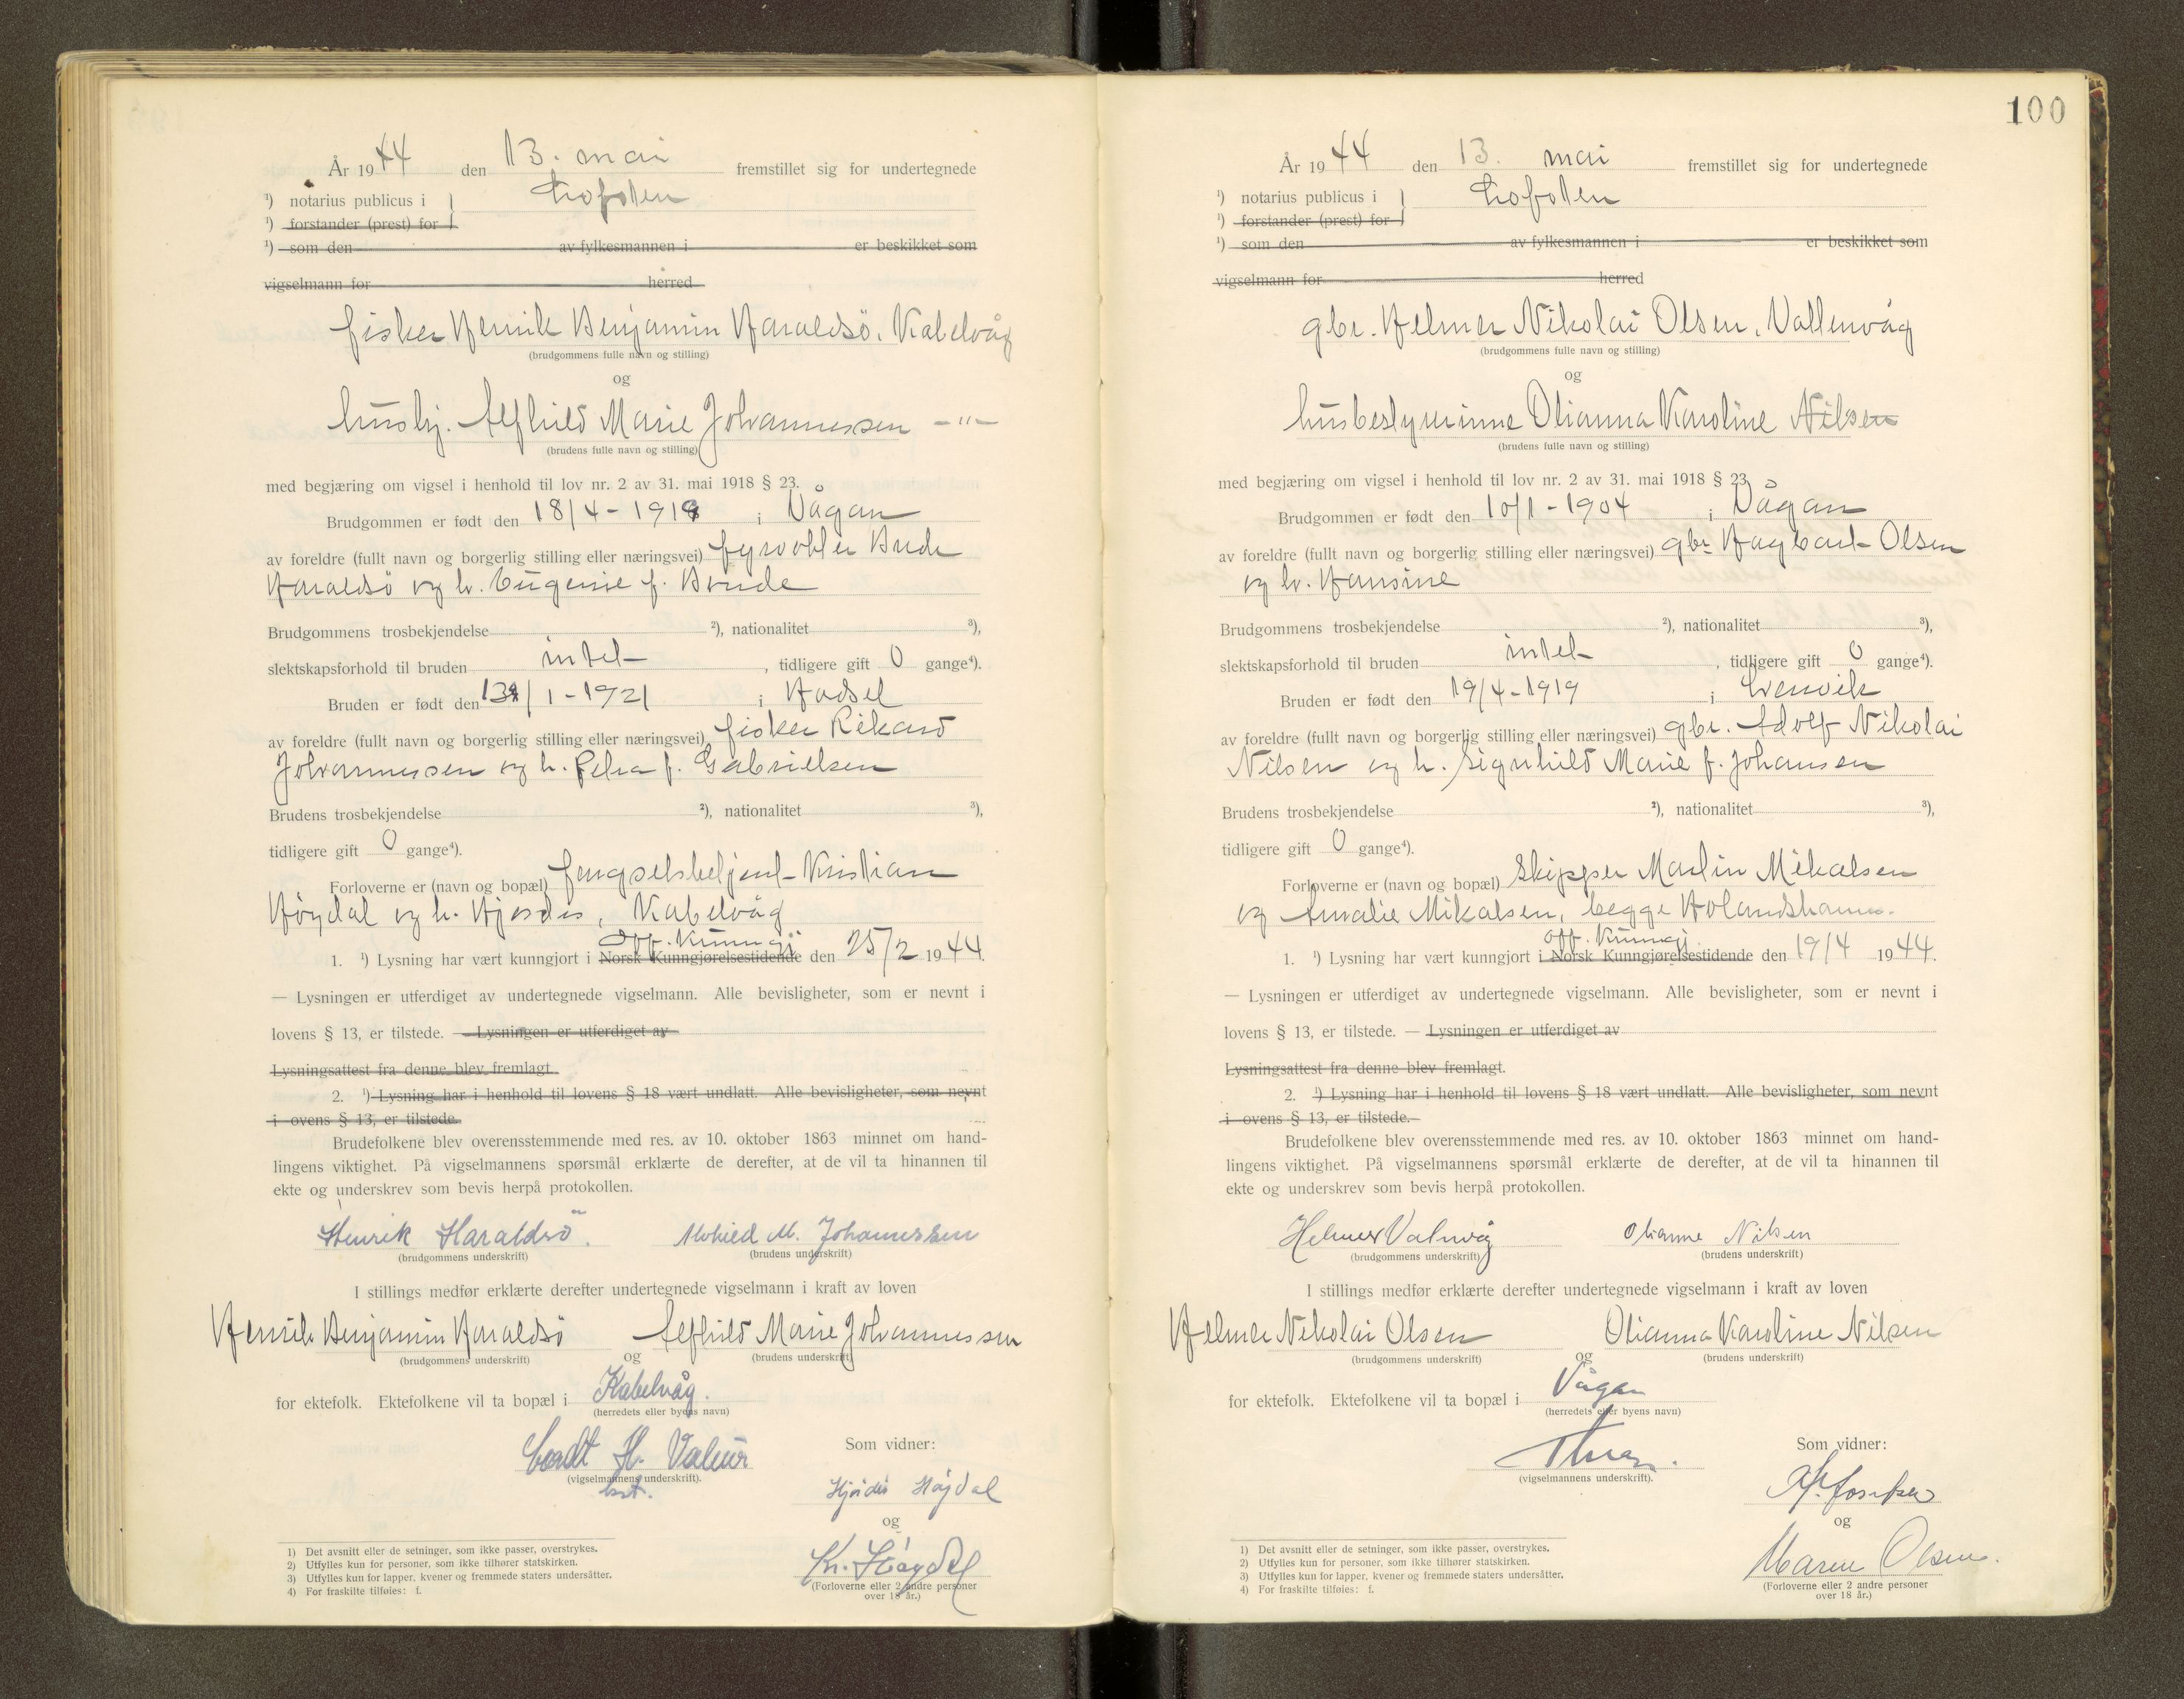 År 1944 den 13. mai fremstillet sig for undertegnede
¹) notarius publicus i Lofoten
¹) forstander (prest) for
¹) som den av fylkesmannen i er beskikket som
vigselmann for herred
fisker Henrik Benjamin Haraldsö, Kabelvåg
(brudgommens fulle navn og stilling)
og
hushj. Alfhild Marie Johannessen - " -
(brudens fulle navn og stilling)
med begjæring om vigsel i henhold til lov nr. 2 av 31. mai 1918 § 23.
Brudgommen er født den 18/4 - 1918 i Vågan
av foreldre (fullt navn og borgerlig stilling eller næringsvei) fyrvokter
Haraldsö og h. Eugenie f.
Brudgommens trosbekjendelse ²), nationalitet ³),
slektskapsforhold til bruden intet , tidligere gift 0 gange⁴).
Bruden er født den 1 - 1921 i Hadsel
av foreldre (fullt navn og borgerlig stilling eller næringsvei) fisker Rikard
Johannessen og h. Petra f. Gabrielsen
Brudens trosbekjendelse ²), nationalitet ³),
tidligere gift 0 gange⁴).
Forloverne er (navn og bopæl) fengselsbetjent Kristian
Høydal og h. Hjørdis, Kabelvåg
off. kunngj
1. ¹) Lysning har vært kunngjort i Norsk Kunngjørelsestidende den 25/2 1944.
— Lysningen er utferdiget av undertegnede vigselmann. Alle bevisligheter, som er nevnt i
lovens § 13, er tilstede. — Lysningen er utferdiget av
Lysningsattest fra denne blev fremlagt.
2. ¹) Lysning har i henhold til lovens § 18 vært undlatt. Alle bevisligheter, som nevnt
i ovens § 13, er tilstede.
Brudefolkene blev overensstemmende med res. av 10. oktober 1863 minnet om hand-
lingens viktighet. På vigselmannens spørsmål erklærte de derefter, at de vil ta hinannen til
ekte og underskrev som bevis herpå protokollen.
Henrik Haraldsö. Alfhild M. Johannessen
(brudgommens underskrift) (brudens underskrift)
I stillings medfør erklærte derefter undertegnede vigselmann i kraft av loven
Henrik Benjamin Haraldsö Alfhild Marie Johannessen
(brudgommens underskrift) og (brudens underskrift)
for ektefolk. Ektefolkene vil ta bopæl i Kabelvåg.
(herredets eller byens navn)
Cordt H. Valeur Som vidner:
(vigselmannens underskrift).
bst. Hjørdis Høydal
og
Kr. Høydal
(Forloverne eller 2 andre personer
over 18 år.)
1) Det avsnitt eller de setninger, som ikke passer, overstrykes.
2) Utfylles kun for personer, som ikke tilhører statskirken.
3) Utfylles kun for lapper, kvener og fremmede staters undersåtter.
4) For fraskilte tilføies: f.
100
År 1944 den 13. mai fremstillet sig for undertegnede
¹) notarius publicus i Lofoten
¹) forstander (prest) for
¹) som den av fylkesmannen i er beskikket som
vigselmann for herred
gbr. Helmer Nikolai Olsen, Vallenvåg
(brudgommens fulle navn og stilling)
og
husbestyrerinne Olianna Karoline Nilsen
(brudens fulle navn og stilling)
med begjæring om vigsel i henhold til lov nr. 2 av 31. mai 1918 § 23.
Brudgommen er født den 10/1 - 1904 i Vågan
av foreldre (fullt navn og borgerlig stilling eller næringsvei) gbr. Hagbart Olsen
og h. Hansine
Brudgommens trosbekjendelse ²), nationalitet ³),
slektskapsforhold til bruden intet , tidligere gift 0 gange⁴).
Bruden er født den 19/4 - 1919 i Lenvik
av foreldre (fullt navn og borgerlig stilling eller næringsvei) gbr. Adolf Nikolai
Nilsen og h. Signhild Marie f. Johansen
Brudens trosbekjendelse ²), nationalitet ³),
tidligere gift 0 gange⁴).
Forloverne er (navn og bopæl) Skipper Martin Mikalsen
og Amalie Mikalsen, begge Holandshamn.
off. kunngj.
1. ¹) Lysning har vært kunngjort i Norsk Kunngjørelsestidende den 19/4 1944.
— Lysningen er utferdiget av undertegnede vigselmann. Alle bevisligheter, som er nevnt i
lovens § 13, er tilstede. — Lysningen er utferdiget av
Lysningsattest fra denne blev fremlagt.
2. ¹) Lysning har i henhold til lovens § 18 vært undlatt. Alle bevisligheter, som nevnt
i ovens § 13, er tilstede.
Brudefolkene blev overensstemmende med res. av 10. oktober 1863 minnet om hand-
lingens viktighet. På vigselmannens spørsmål erklærte de derefter, at de vil ta hinannen til
ekte og underskrev som bevis herpå protokollen.
Helmer Valnvåg Olianne Nilsen
(brudgommens underskrift) (brudens underskrift)
I stillings medfør erklærte derefter undertegnede vigselmann i kraft av loven
Helmer Nikolai Olsen Olianna Karoline Nilsen
(brudgommens underskrift) og (brudens underskrift)
for ektefolk. Ektefolkene vil ta bopæl i Vågan
(herredets eller byens navn)
Som vidner:
(vigselmannens underskrift).
og
Maren Olsen.
(Forloverne eller 2 andre personer
over 18 år.)
1) Det avsnitt eller de setninger, som ikke passer, overstrykes.
2) Utfylles kun for personer, som ikke tilhører statskirken.
3) Utfylles kun for lapper, kvener og fremmede staters undersåtter.
4) For fraskilte tilføies: f.